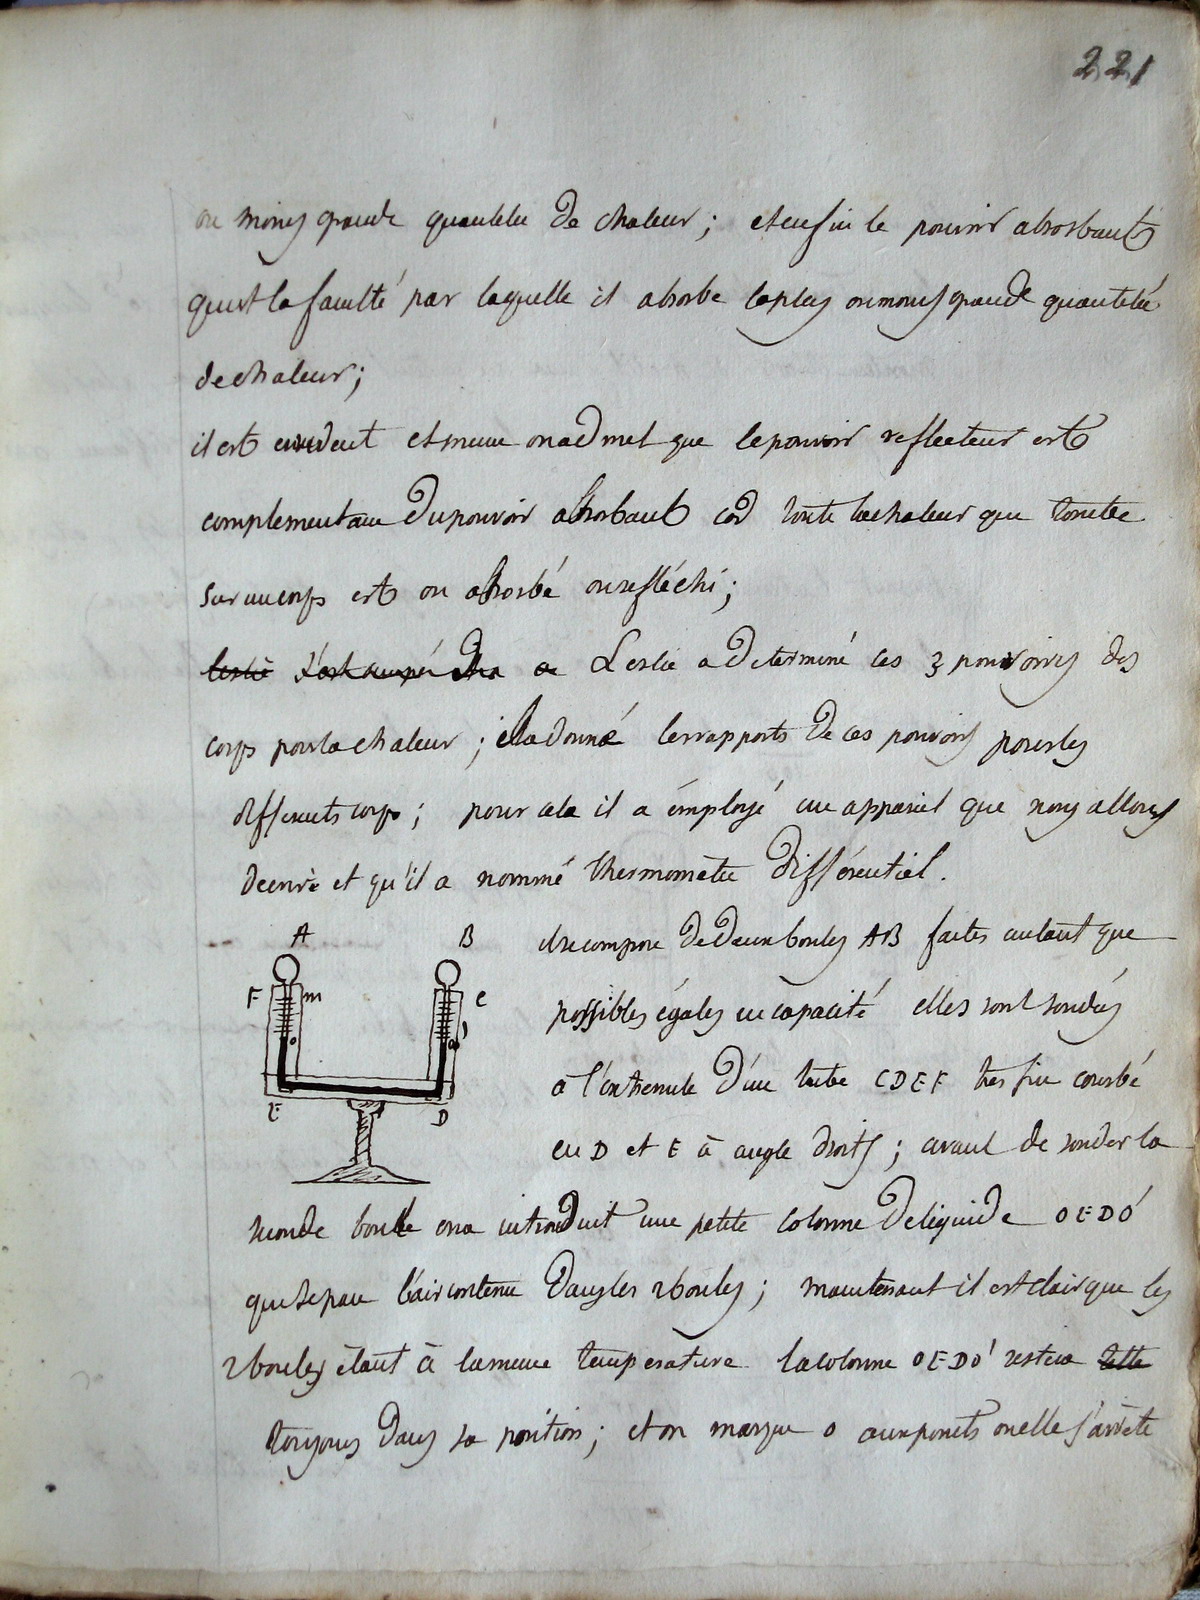 221
ou moins grande quantitée de chaleur ; et enfin le pouvoir absorbant
qui est la faculté par laquelle il absorbe la plus ou moins grande quantitée
de chaleur ;
il est evident et meme on admet que le pouvoir reflecteur est
complementaire du pouvoir absorbant càd toute la chaleur qui tombe
sur un corps est ou absorbé ou refléchi ;
Leslie s'est occupé Leslie a determiné ces 3 pouvoirs des
corps pour la chaleur ; il a donné les rapports de ces pouvoirs pour les
differents corps ; pour cela il a émployé un appareil que nous allons
decrire et qu'il a nommé thermometre différentiel.
A B
il se compose de deux boules AB faites autant que
F m C
possibles égales en capacité elles sont soudés
o o'
a l'extremité d'un tube CDEF tres fin courbé
E D
en D et E à angle droits ; avant de souder la
seconde boule on a introduit une petite colonne de liquide OEDO'
qui separe l'air contenu dans les 2 boules ; maintenant il est clair que les
2 boules étant à la meme temperature la colonne OEDO' restera
toujours dans sa position ; et on marque o aux points où elle s'arrête